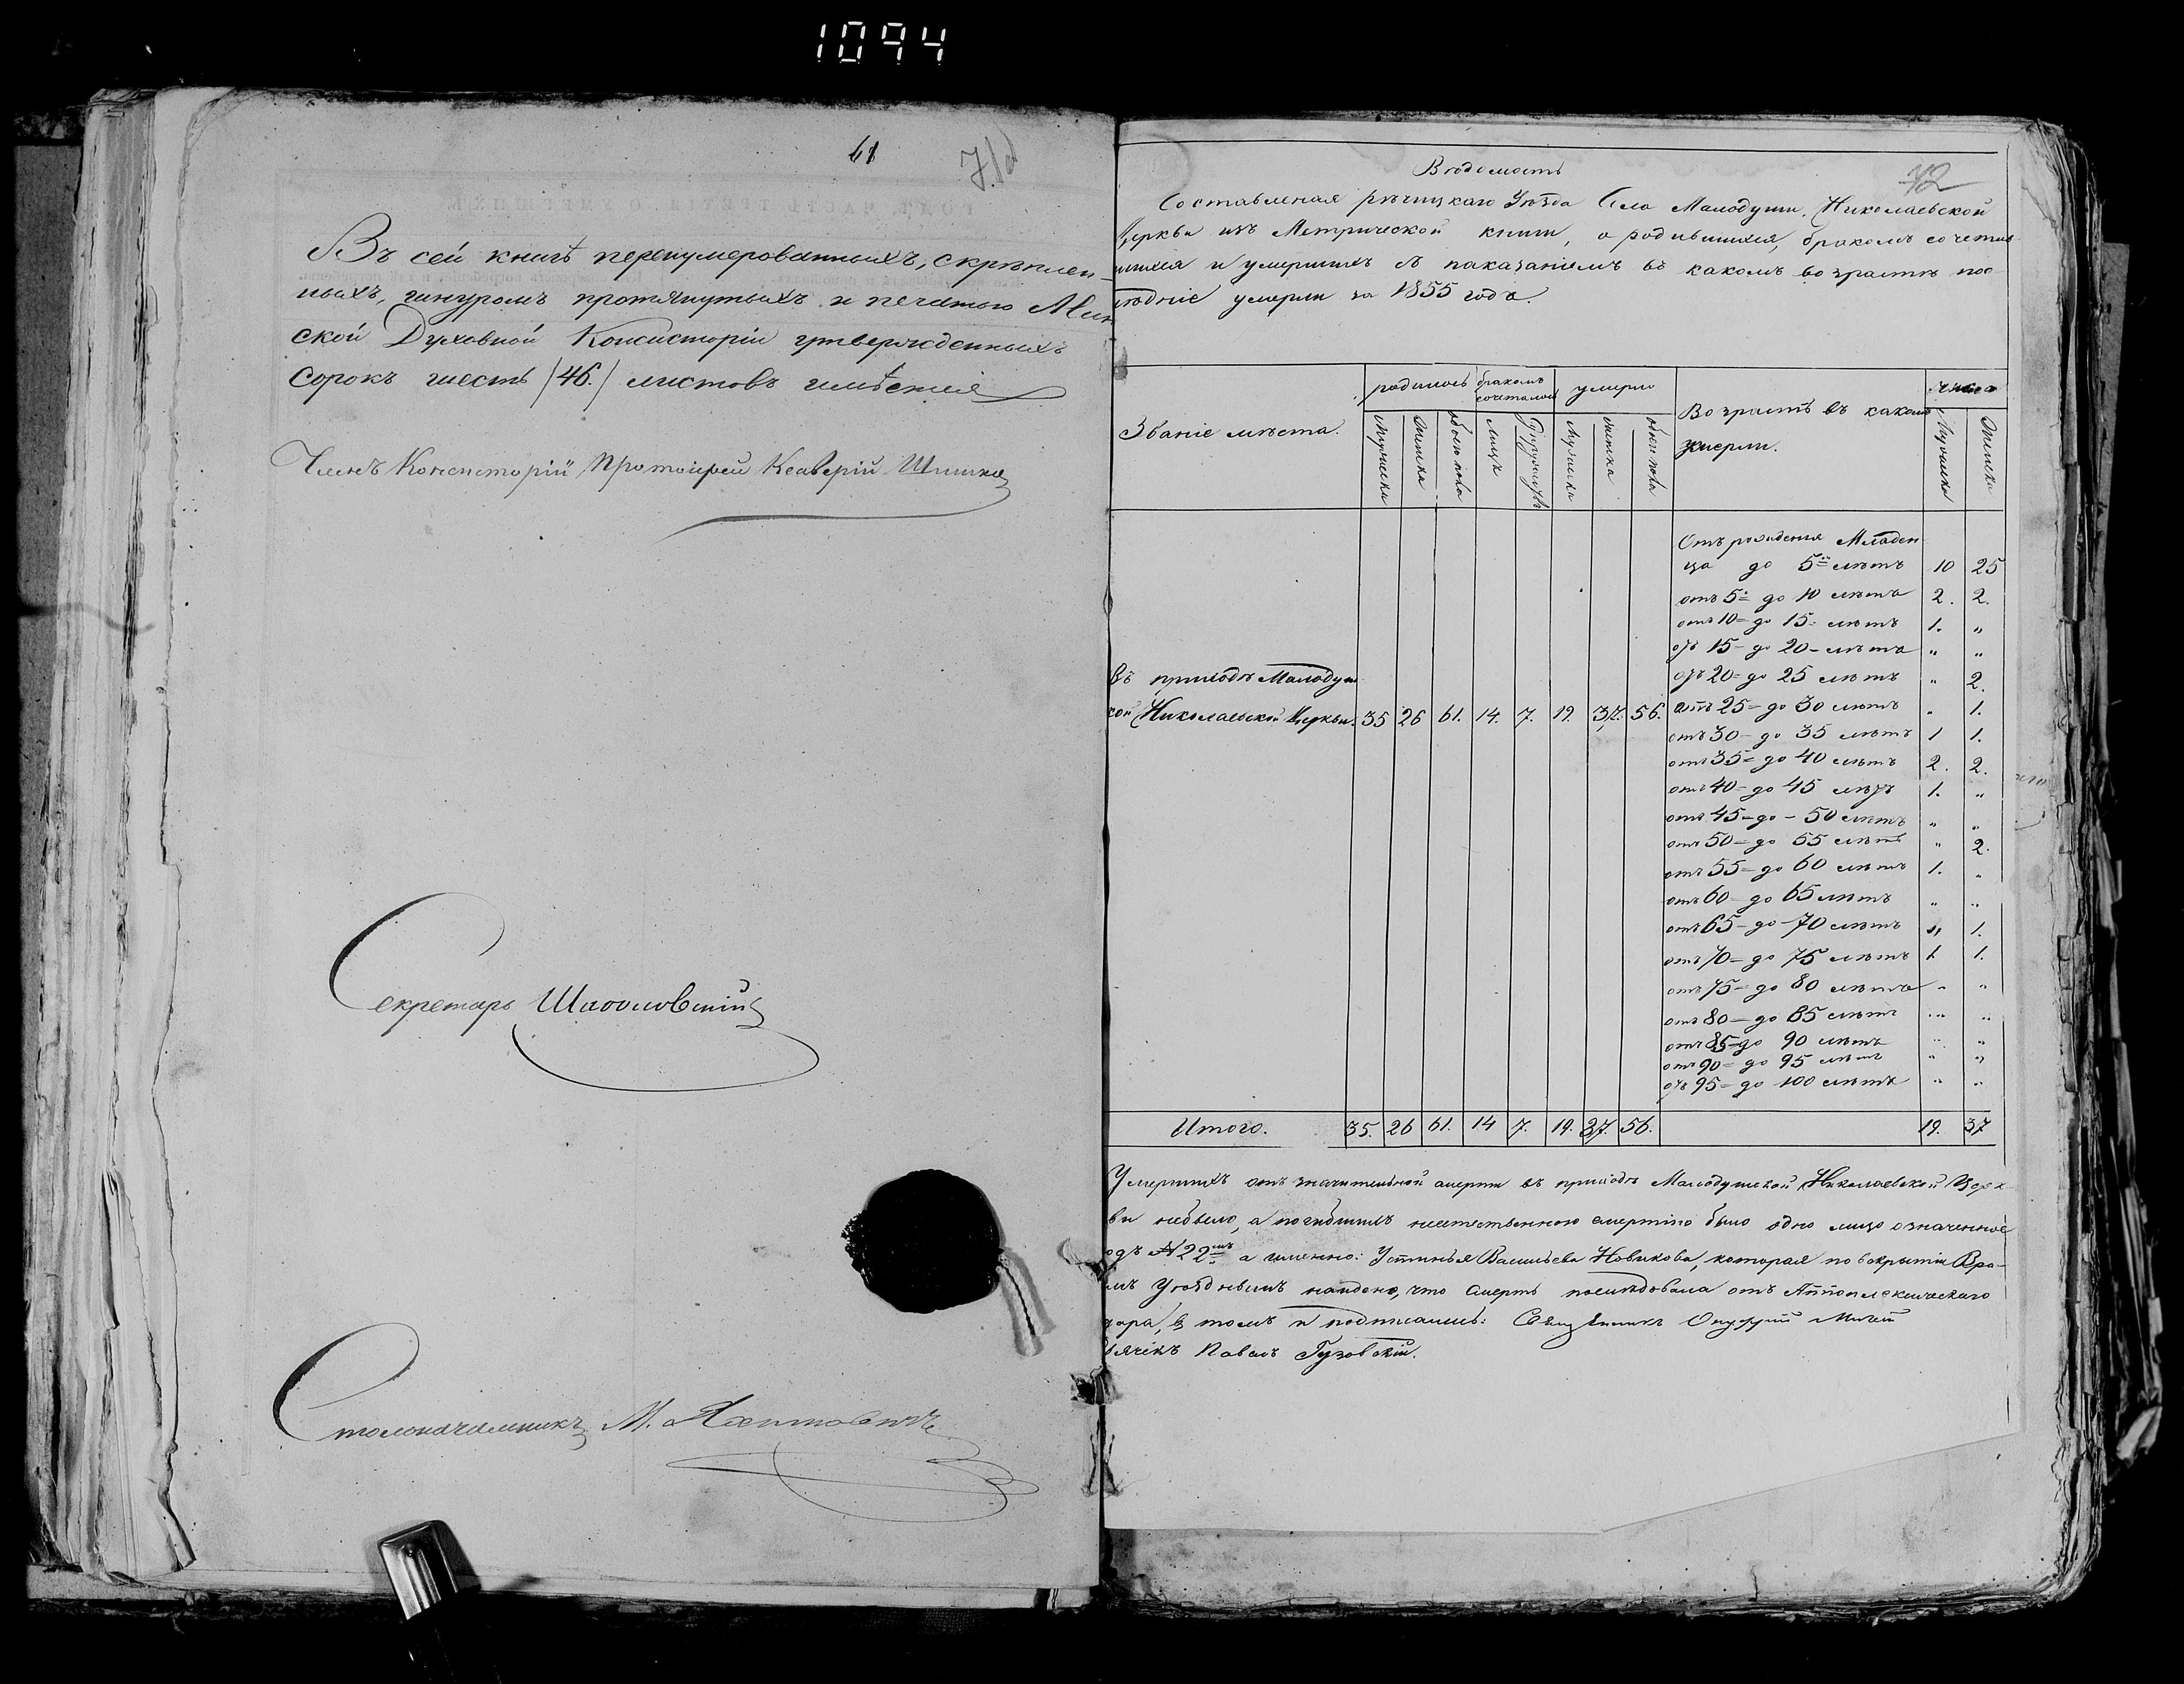 1094
61
71об
Въ сей книгѣ перенумерованныхъ, скрѣплен-
ныхъ, шнуромъ протянутыхъ и печатью Мин
ской Духовной Консисторіи утвержденныхъ
сорокъ шесть /46./ листовъ имѣется
Членъ Консисторіи Протоіерей Ксаверій
Секретарь
Столоначальникъ М.
72
Вѣдомость
Составленая рѣчицкаго Уѣзда Села Малодуши, Николаевской
Церкви изъ Метрической книги, о родившихся, бракомъ сочетав
шихся и умершихъ съ показаніемъ въ какомъ возрастѣ пос
лѣдніе умерли за 1855 годъ.
Званіе мѣста. родилось бракомъ сочеталось умерло Возрастъ въ какомъ умерли. число
мужеска женска обоего пола лицъ супружествъ мужеска женска обоего пола мужеска женска
Отъ рожденія Младен
ца до 5 лѣтъ 10 25
отъ 5 = до 10 лѣтъ 2. 2.
отъ 10 = до 15 = лѣтъ 1. „
отъ 15 - до 20 - лѣтъ „ „
отъ 20 = до 25 лѣтъ „ 2.
въ приходѣ Малодуш
кой Николаевской Церкви. 35 26 61. 14. 7. 19. 37. 56. отъ 25 = до 30 лѣтъ „ 1.
отъ 30 - до 35 лѣтъ 1 1.
отъ 35 = до 40 лѣтъ 2. 2.
отъ 40 = до 45 лѣтъ 1. „
отъ 45 = до - 50 лѣтъ „ „
отъ 50 = до 55 лѣтъ „ 2.
отъ 55 = до 60 лѣтъ 1. „
отъ 60 - до 65 лѣтъ „ „
отъ 65 - до - 70 лѣтъ „ 1.
отъ 70 = до 75 лѣтъ 1 1.
отъ 75 = до 80 лѣтъ „ „
отъ 80 = до 85 лѣтъ „ „
отъ 85 = до 90 лѣтъ „ „
отъ 90 = до 95 лѣтъ „ „
отъ 95 = до 100 лѣтъ „ „
Итого. 35. 26 61. 14 7. 19. 37. 56. 19. 37
Умершихъ отъ значительной смерти въ приходѣ Малодушской Николаевской Церк
ви небыло, а погибшихъ неестественною смертію было одно лицо означенное
одъ № 22мъ а именно: Устинья Васильева Новикова, которая по вскрытіи Вра-
мъ Уѣзднымъ найдено, что смерть послѣдовала отъ Аппоплексическаго
дара, въ томъ и подписались: Священникъ Онуфрій
ячекъ Павелъ Гузовскій.